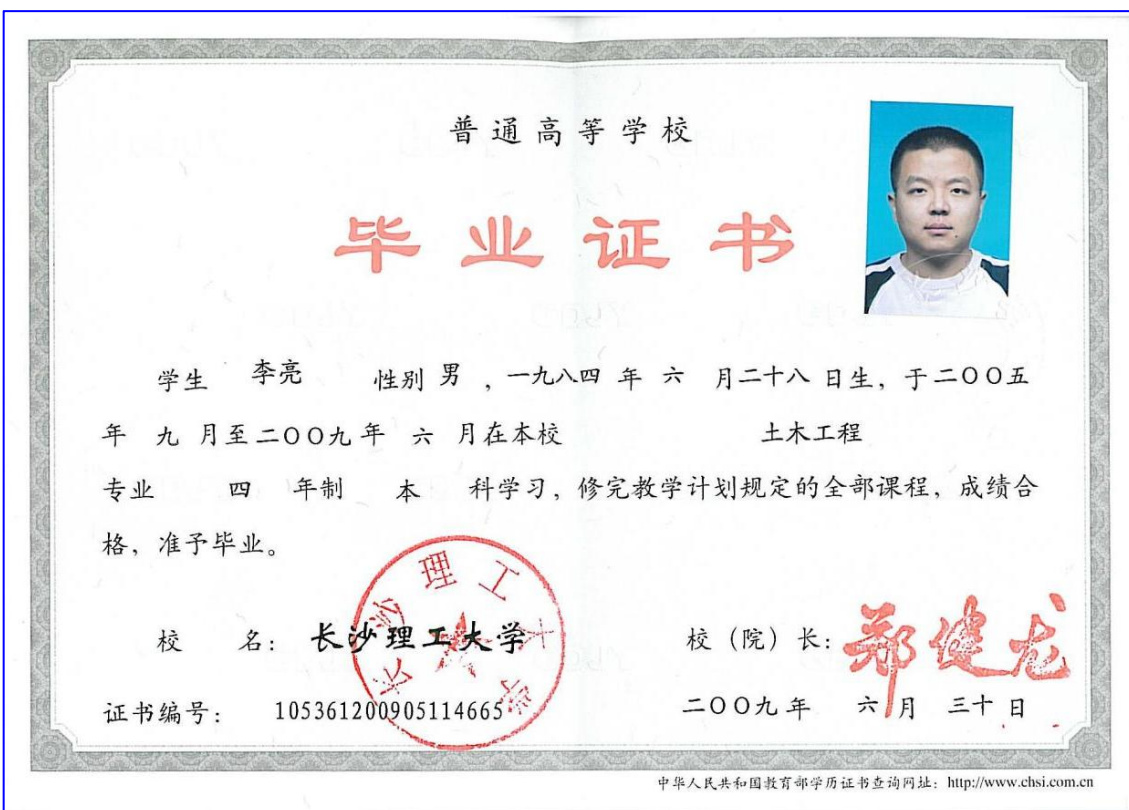 普通高等学校
毕业证书
学生 李亮 性别 男 ，一九八四 年 六 月二十八 日生，于二〇〇五
年 九 月至二〇〇九年 六 月在本校 土木工程
专业 四 年制 本 科学习，修完教学计划规定的全部课程，成绩合
格，准予毕业。
长沙理工大学
校 名：长沙理工大学 校（院）长：郑健龙
证书编号：105361200905114665 二〇〇九年 六月 三十日
中华人民共和国教育部学历证书查询网址：http://www.chsi.com.cn